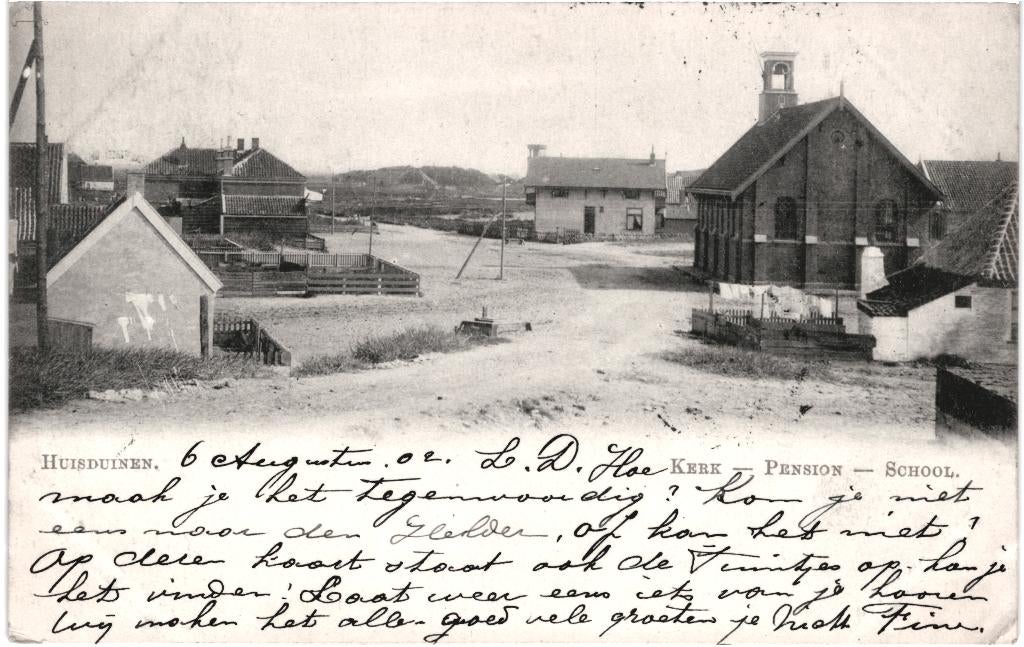 HUISDUINEN. 6 Augustus. 02. L. D. Hoe KERK — PENSION — SCHOOL.
maak je het tegenwoordig? Kom je niet
eens naar den Helder, of kan het niet?
op deren kaart staat ook de Tuintjes op. kan je
het vinden! Laat weer eens iets van je hooren
Wij maken het alle goed vele groeten je